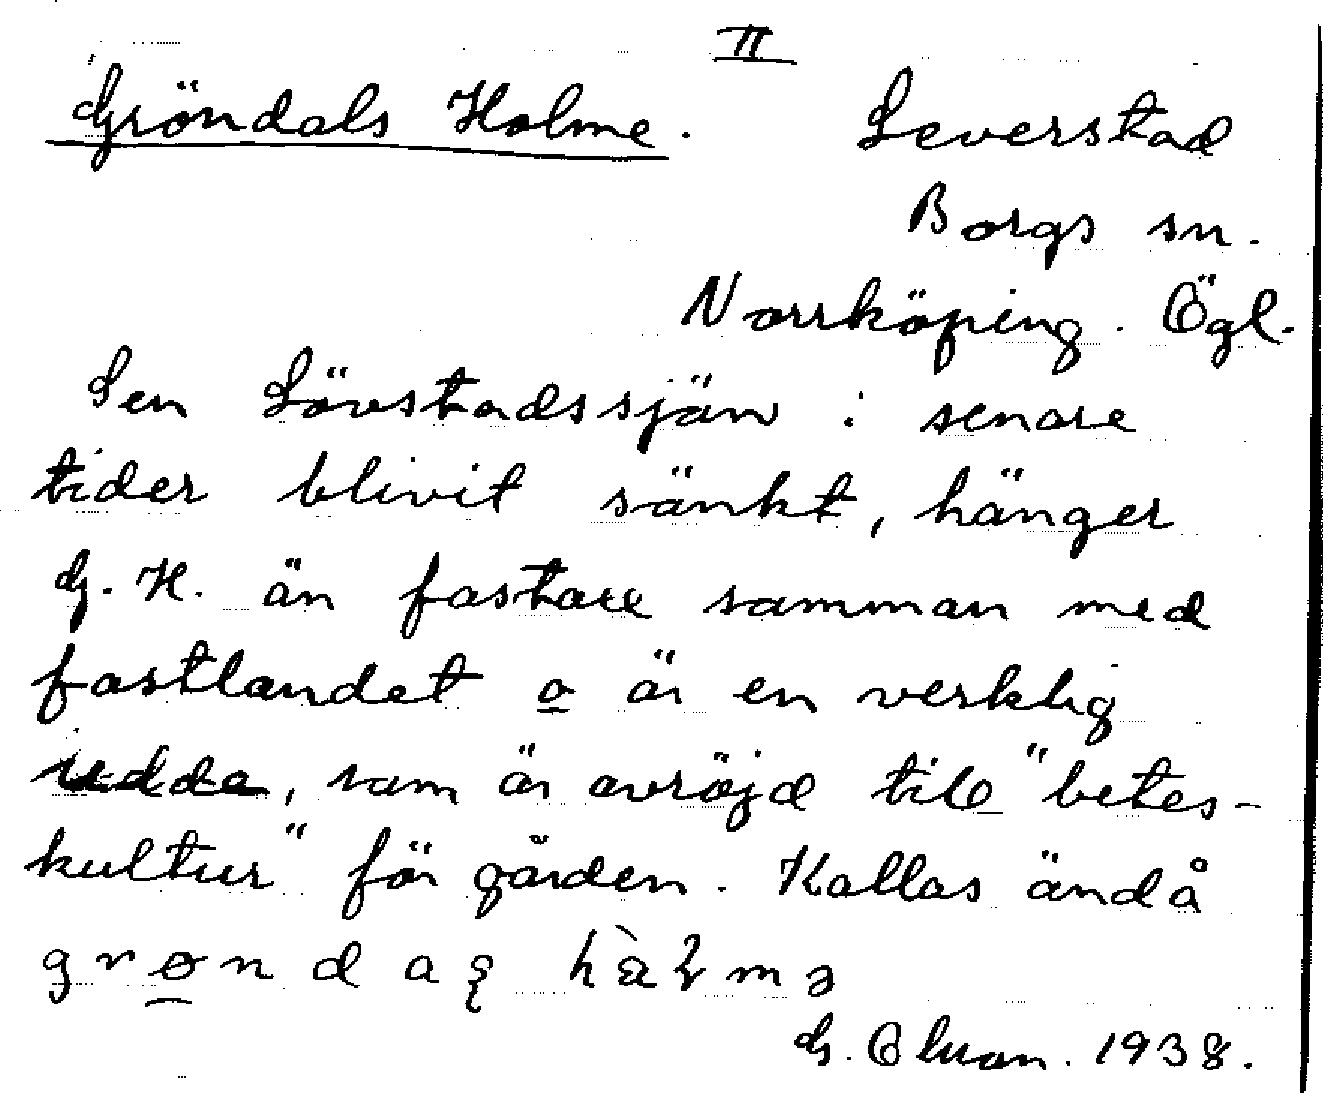 II
Gröndals Holme. Leverstad
Borgs sn.
Norrköping. Ögl.
Sen Lövstadssjän i senare
tider blivit sänkt, hänger
G. H. än fastare samman med
fastlandet o är en verklig
udde, som är avröjd till "betes-
kultur" för gården. Kallas ändå
grønd
G. 1938.